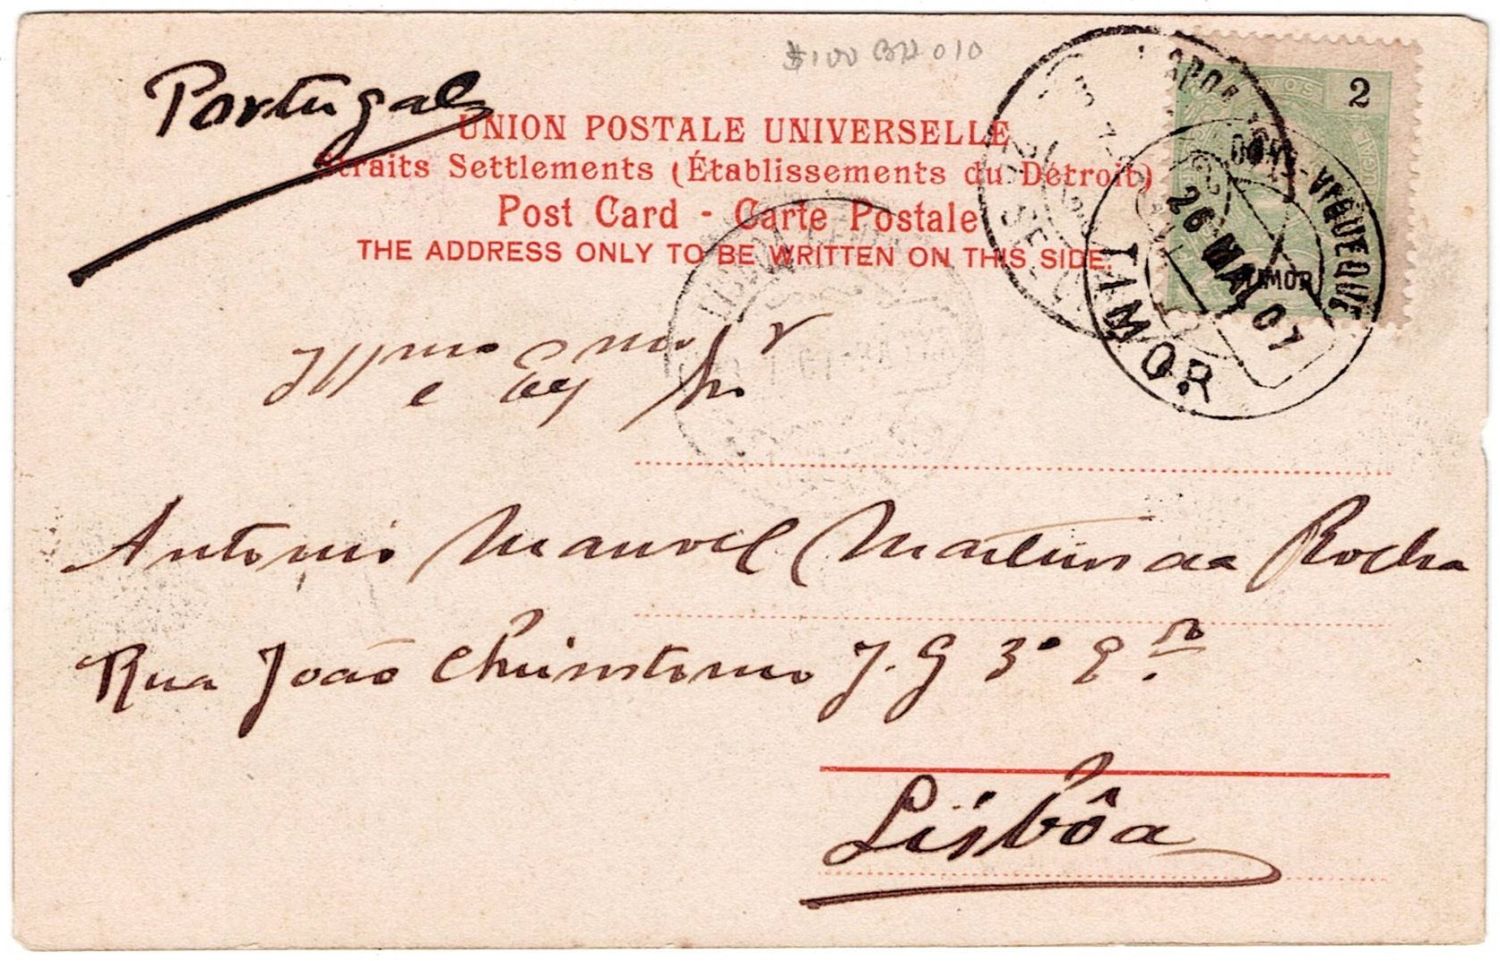 $100 BH 010
Portugal
UNION POSTALE UNIVERSELLE
Straits Settlements (Établissements du Détroit)
Post Card - Carte Postale
THE ADDRESS ONLY TO BE WRITTEN ON THIS SIDE.
2
TIMOR
VIQUEQUE
26 MAI 07
TIMOR
LISBOA
Illmo e Exmo Sr
Antonio Manoel Martins da Rocha
Rua João Chrisostomo J. G 3º
Lisbôa